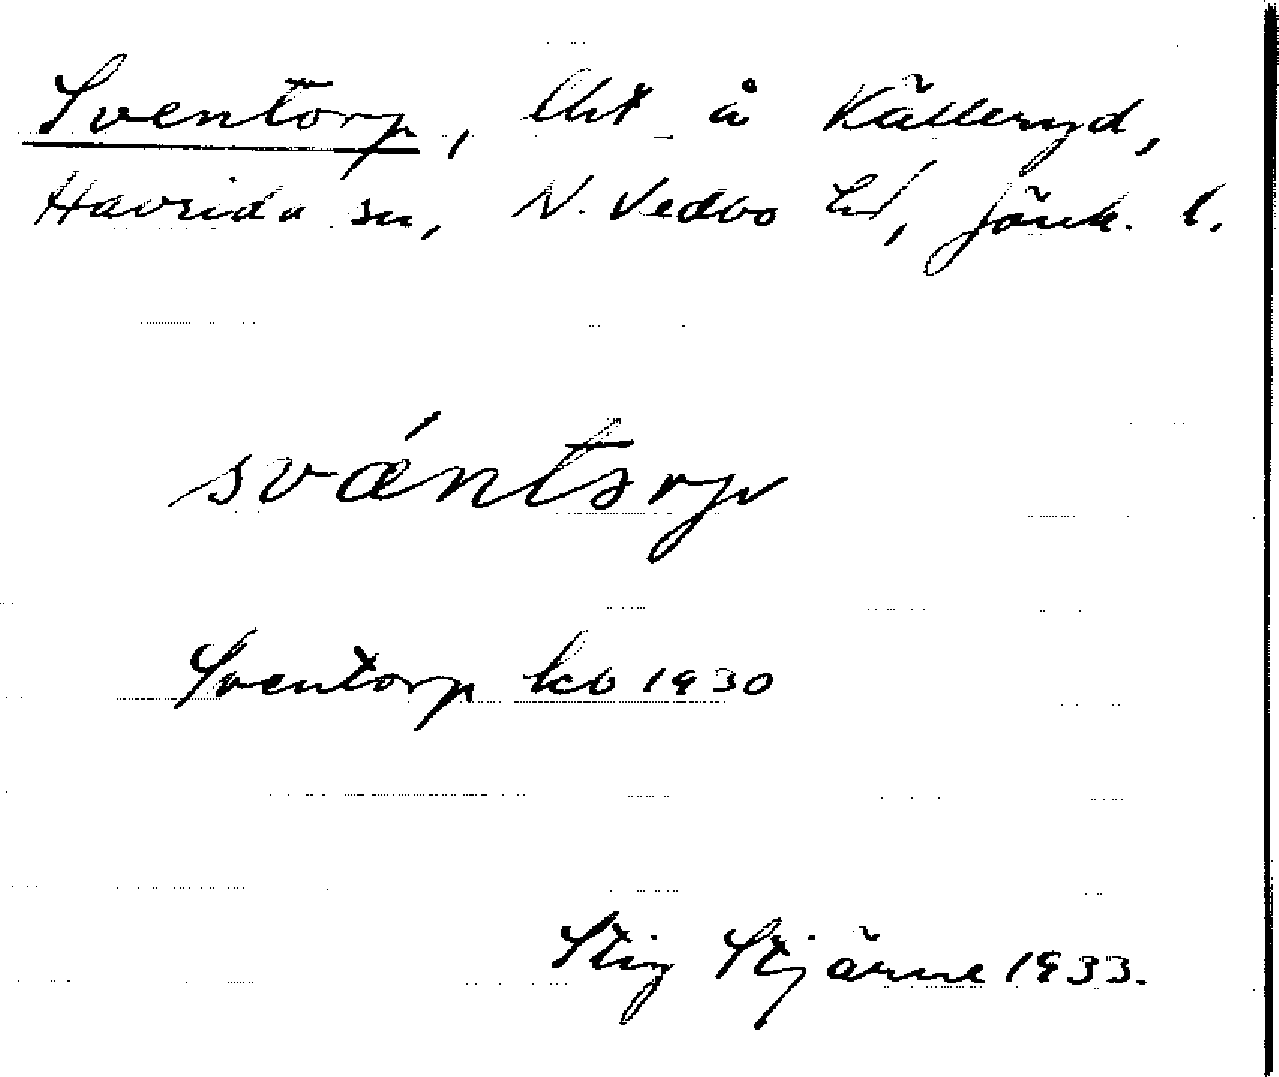 Sventorp, lht å Källeryd,
Haurida sn, N. Vedbo hd, Jönk. l.
svǽntɔrp
Sventorp kb 1930
Stig Stjärne 1933.